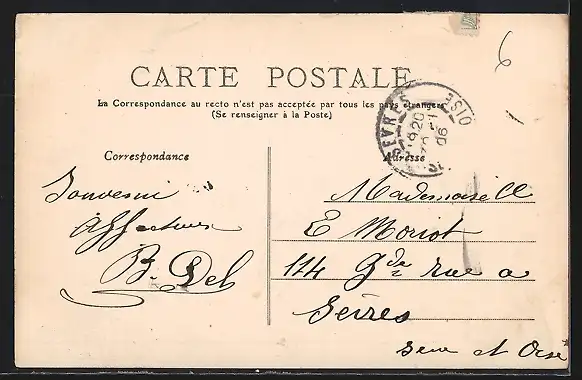 6
CARTE POSTALE
La Correspondance au recto n'est pas acceptée par tous les pays étrangers
(Se renseigner à la Poste)
SEVRES
OISE
20
06
Correspondance
Adresse
Souvenir
Affectueux
B. Del
Mademoiselle
E Moriot
114 Gde rue a
Sèvres
Seine et Oise